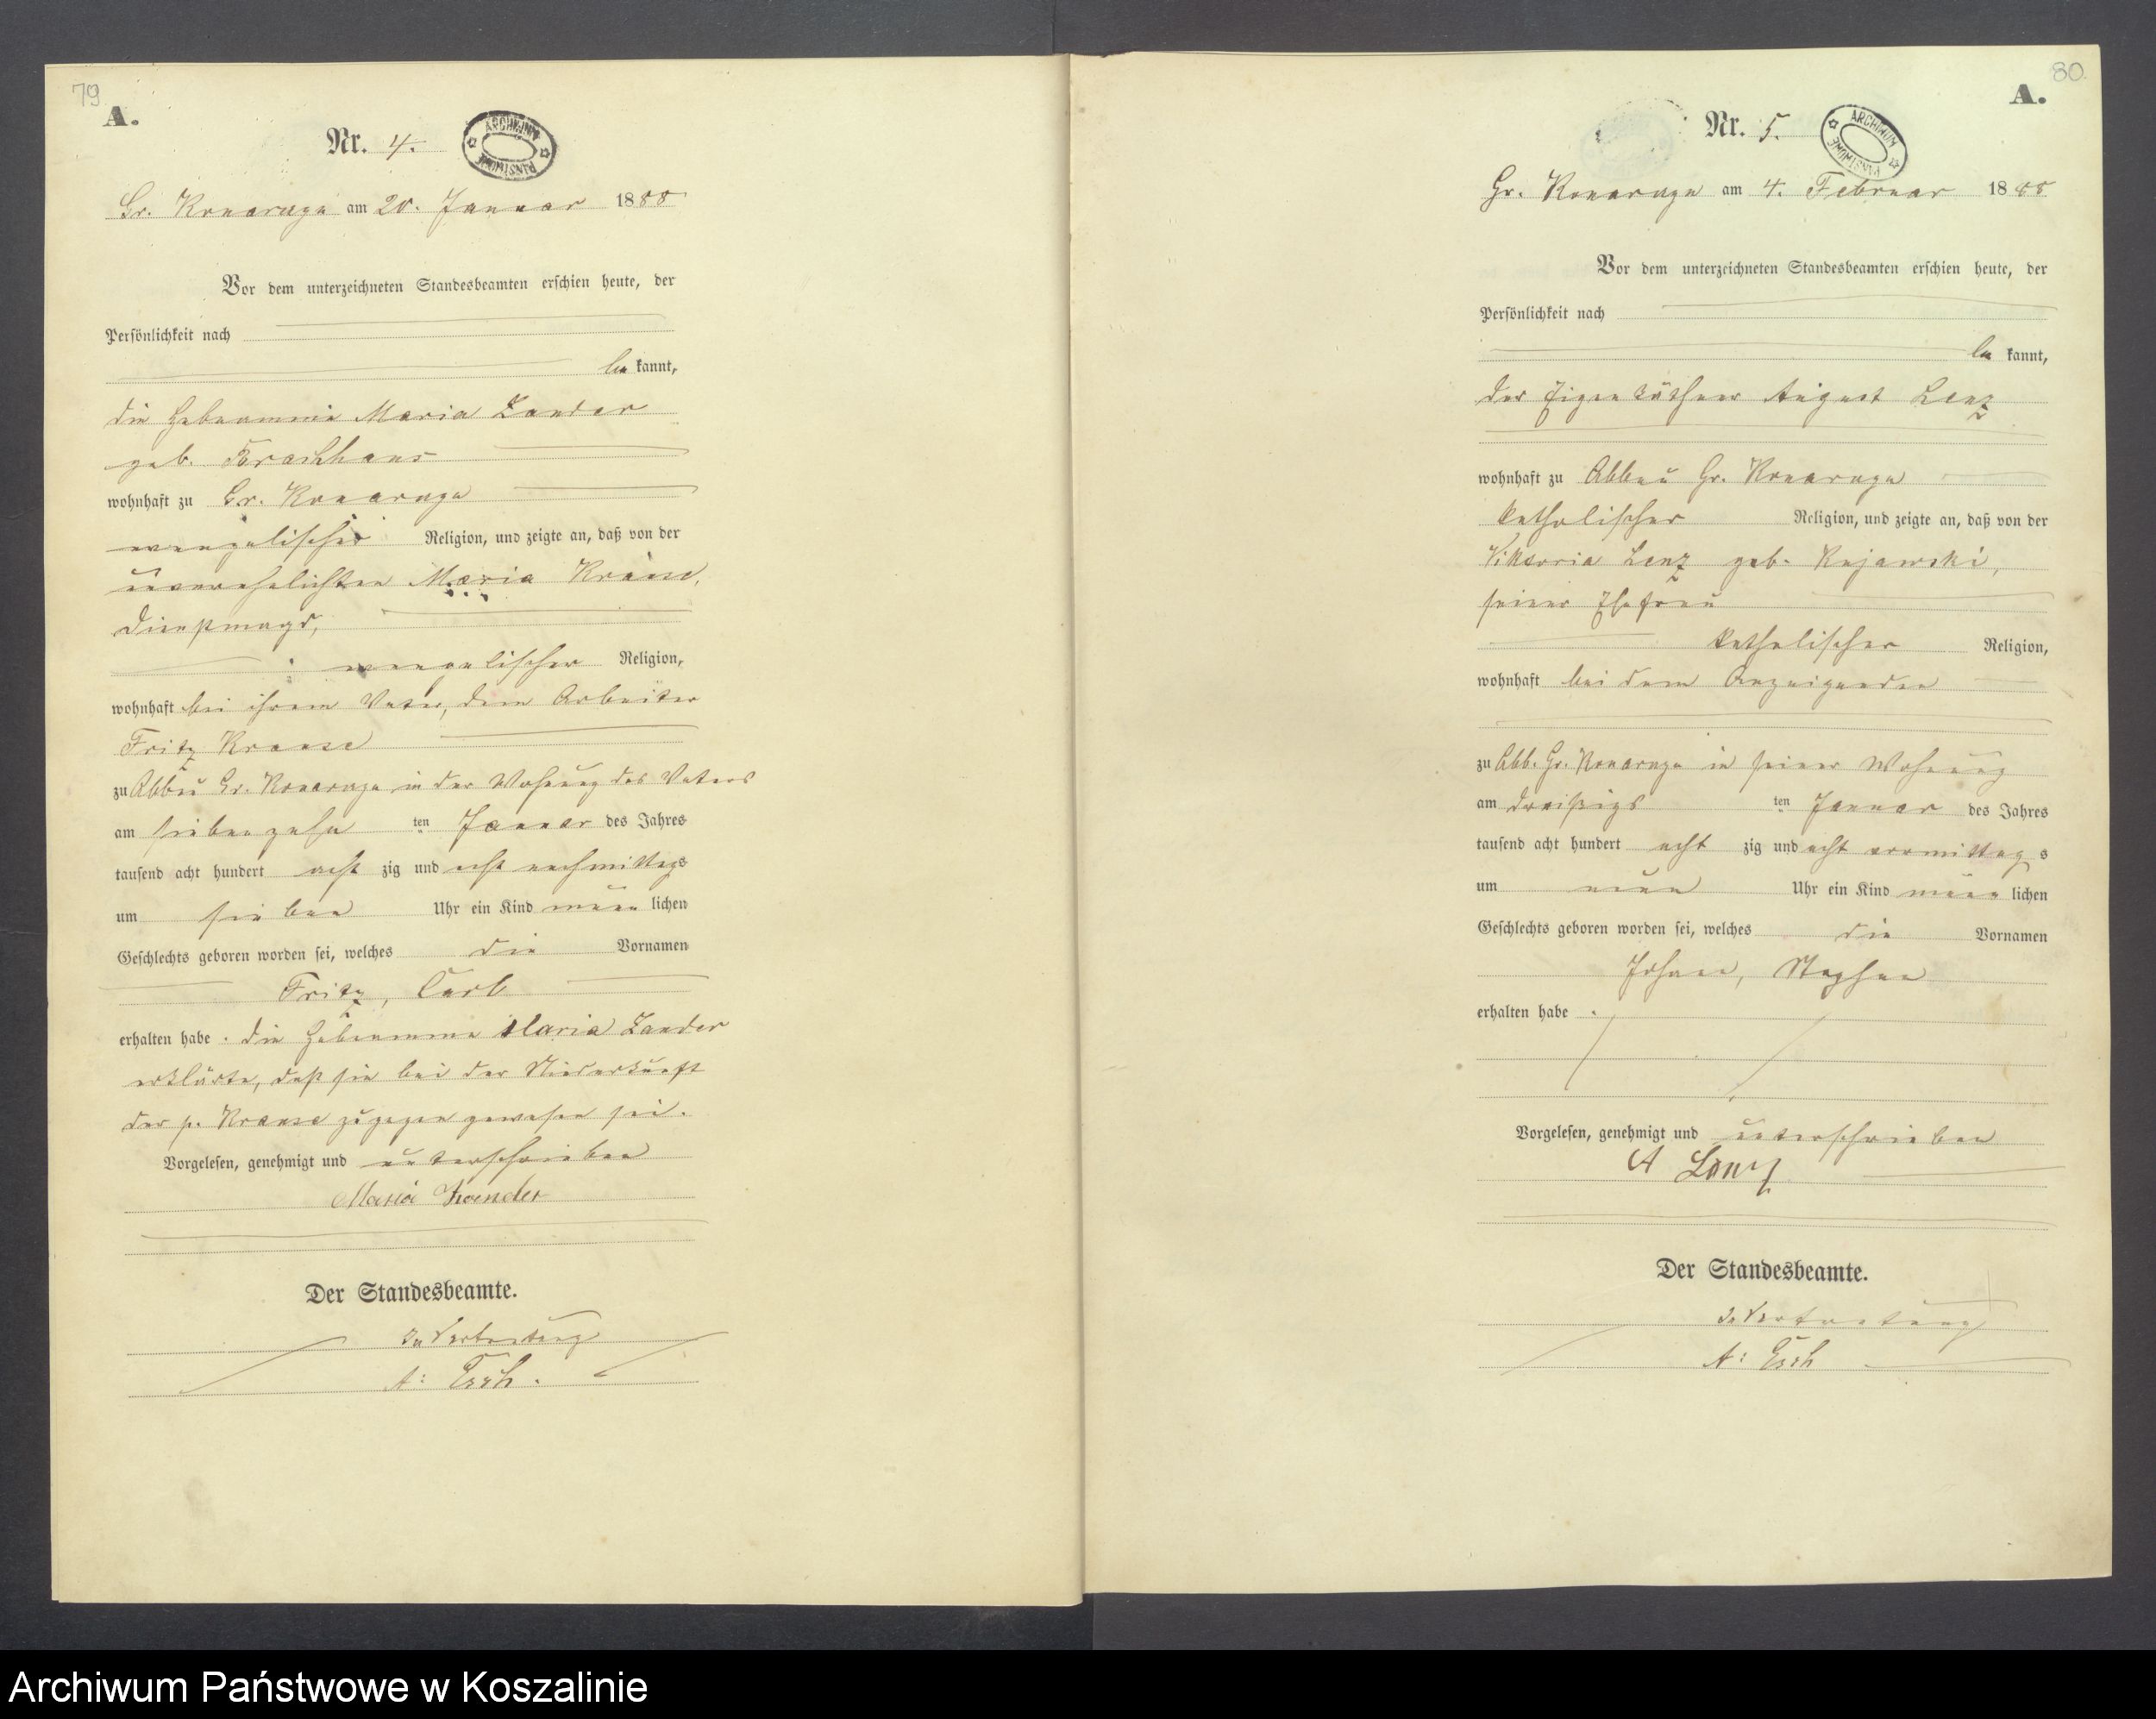 79
A.
Nr. 4.
ARCHIWUM PAŃSTWOWE
Gr. Konarczyn am 20. Januar 1888
Vor dem unterzeichneten Standesbeamten erschien heute, der
Persönlichkeit nach
be kannt,
die Hebeamme Maria Zander
geb.
wohnhaft zu Gr.
evangelischer Religion, und zeigte an, daß von der
unverehelichten Maria Krause,
Dienstmagd,
evangelischer Religion,
wohnhaft bei ihrem Vater, dem Arbeiter
Fritz Krause
zu Abbau Gr. in der Wohnung des Vaters
am siebenzehn ten Januar des Jahres
tausend acht hundert acht zig und acht nachmittags
um sieben Uhr ein Kind männ lichen
Geschlechts geboren worden sei, welches die Vornamen
Fritz, Carl
erhalten habe. Die Hebeamme Maria Zander
erklärte, daß sie bei der Niederkunft
der p. Krause zugegen gewesen sei.
Vorgelesen, genehmigt und unterschrieben
Maria Zander
Der Standesbeamte.
In Vertretung
A: Esch.
80
A.
Nr. 5.
ARCHIWUM PAŃSTWOWE
Gr. am 4. Februar 1888
Vor dem unterzeichneten Standesbeamten erschien heute, der
Persönlichkeit nach
be kannt,
der Eigenkäthner August Lenz
wohnhaft zu Abbau Gr.
katholischer Religion, und zeigte an, daß von der
Viktoria Lenz geb. Kujawski,
seiner Ehefrau
katholischer Religion,
wohnhaft bei dem Anzeigenden
zu Abb. Gr. in seiner Wohnung
am dreißigs ten Januar des Jahres
tausend acht hundert acht zig und acht vormittag s
um neun Uhr ein Kind männ lichen
Geschlechts geboren worden sei, welches die Vornamen
Johann, Stephan
erhalten habe.
Vorgelesen, genehmigt und unterschrieben
A Lenz
Der Standesbeamte.
In Vertretung
A: Esch
Archiwum Państwowe w Koszalinie